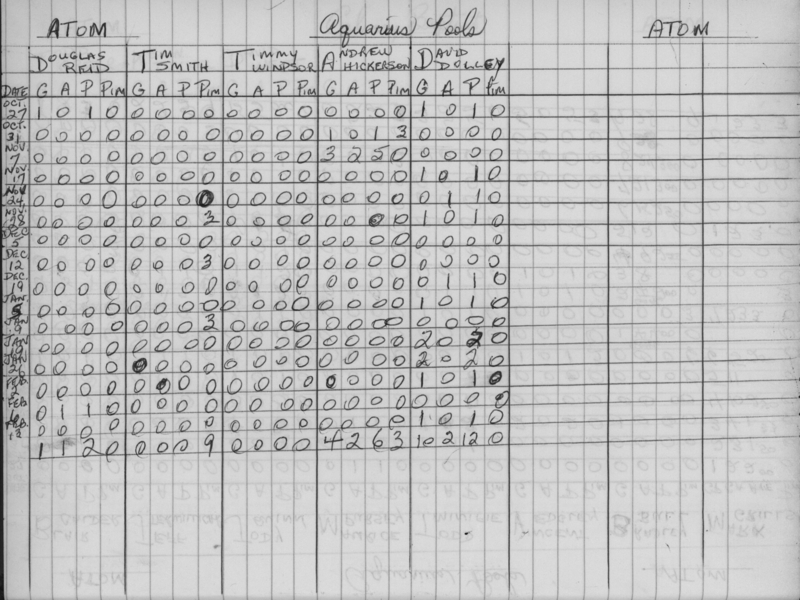 ATOM Aquarius Pools ATOM
DOUGLAS REID TIM SMITH TIMMY WINDSOR ANDREW HICKERSON DAVID DOLLEY
DATE G A P Pim G A P Pim G A P Pim G A P Pim G A P Pim
OCT. 27 1 0 1 0 0 0 0 0 0 0 0 0 0 0 0 0 1 0 1 0
OCT. 31 0 0 0 0 0 0 0 0 0 0 0 0 1 0 1 3 0 0 0 0
NOV. 7 0 0 0 0 0 0 0 0 0 0 0 0 3 2 5 0 0 0 0 0
NOV. 17 0 0 0 0 0 0 0 0 0 0 0 0 0 0 0 0 1 0 1 0
NOV 24 0 0 0 0 0 0 0 0 0 0 0 0 0 0 0 0 0 1 1 0
NOV. 28 0 0 0 0 0 0 0 3 0 0 0 0 0 0 0 0 1 0 1 0
DEC. 5 0 0 0 0 0 0 0 0 0 0 0 0 0 0 0 0 0 0 0 0
DEC. 12 0 0 0 0 0 0 0 3 0 0 0 0 0 0 0 0 0 0 0 0
DEC. 19 0 0 0 0 0 0 0 0 0 0 0 0 0 0 0 0 0 1 1 0
JAN. 0 0 0 0 0 0 0 0 0 0 0 0 0 0 0 0 1 0 1 0
JAN 9 0 0 0 0 0 0 0 3 0 0 0 0 0 0 0 0 0 0 0 0
JAN 0 0 0 0 0 0 0 0 0 0 0 0 0 0 0 0 2 0 2 0
JAN 26 0 0 0 0 0 0 0 0 0 0 0 0 0 0 0 0 2 0 2 0
FEB 2 0 0 0 0 0 0 0 0 0 0 0 0 0 0 0 0 1 0 1 0
FEB. 0 1 1 0 0 0 0 0 0 0 0 0 0 0 0 0 0 0 0 0
FEB. 13 0 0 0 0 0 0 0 0 0 0 0 0 0 0 0 0 1 0 1 0
1 1 2 0 0 0 0 9 0 0 0 0 4 2 6 3 10 2 12 0